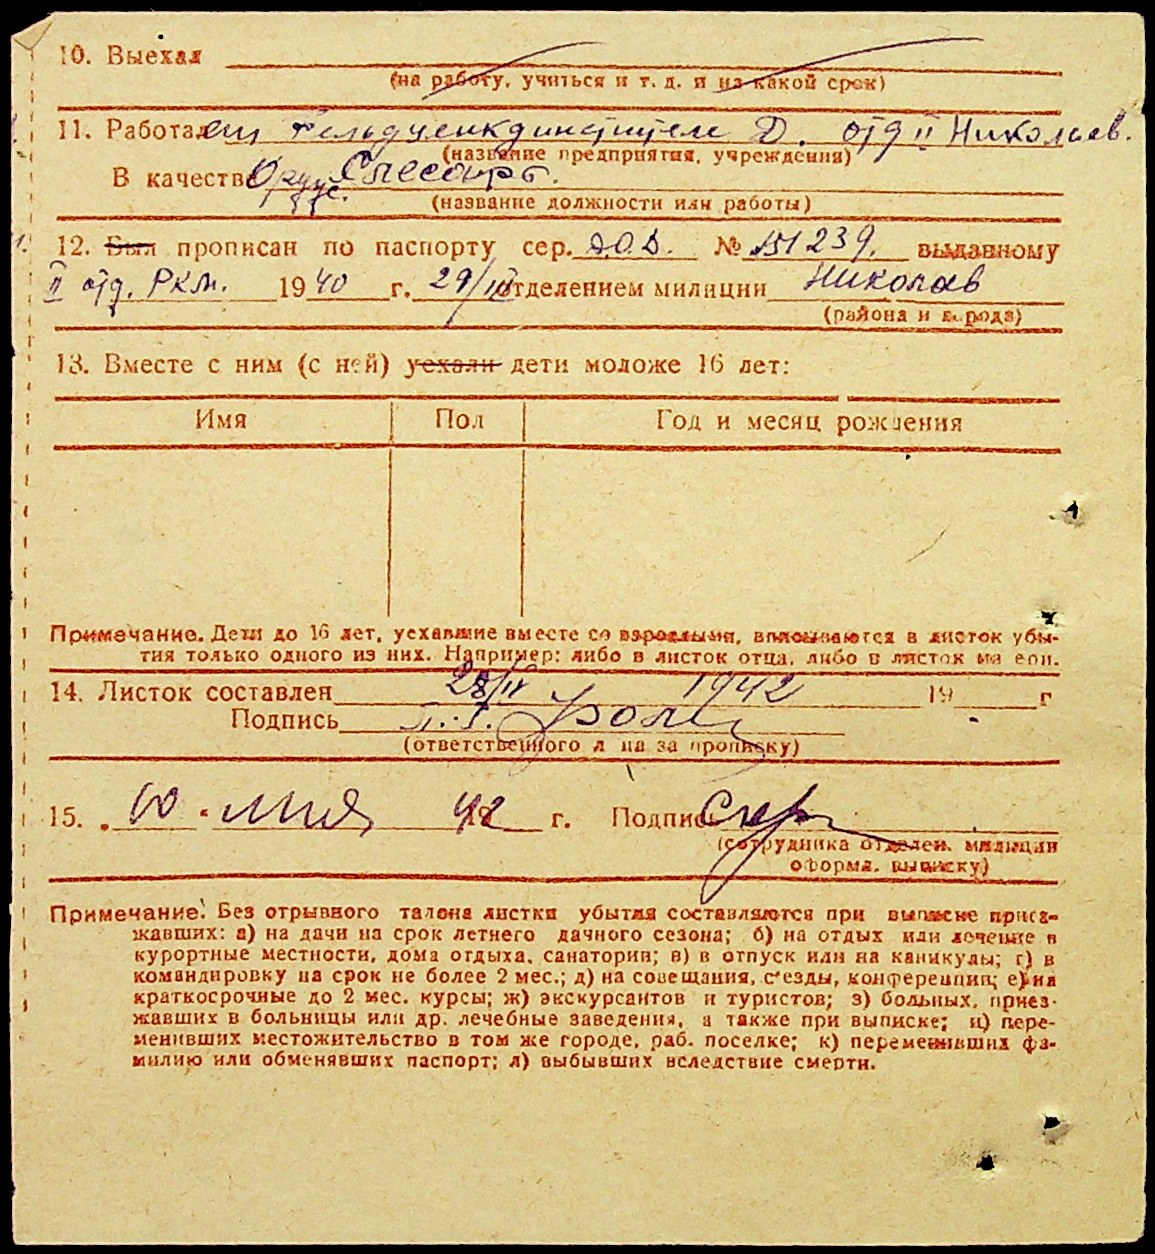 10. Выехал
(на работу, учиться и т. д. и на какой срок)
11. Работал Д. отд II Николаев.
(название предприятия, учреждения)
В качестве Слесарь.
(название должности или работы)
12. Был прописан по паспорту сер. Д.О.Д. № 151239. выданному
II отд. РКМ. 1940 г. 29/III отделением милиции Николаев
(района и города)
13. Вместе с ним (с ней) уехали дети моложе 16 лет:
Имя Пол Год и месяц рождения
Примечание. Дети до 16 лет, уехавшие вместе со взрослыми, вписываются в листок убы-
тия только одного из них. Например: либо в листок отца, либо в листок матери.
14. Листок составлен 28/IV 1942 19 г
Подпись
(ответственного лица за прописку)
15. „10“ мая 42 г. Подпись
(сотрудника отделен. милиции
оформл. выписку)
Примечание. Без отрывного талона листки убытия составляются при выписке приез-
жавших: а) на дачи на срок летнего дачного сезона; б) на отдых или лечение в
курортные местности, дома отдыха, санатории; в) в отпуск или на каникулы; г) в
командировку на срок не более 2 мес.; д) на совещания, с'езды, конференции; е) на
краткосрочные до 2 мес. курсы; ж) экскурсантов и туристов; з) больных, приез-
жавших в больницы или др. лечебные заведения, а также при выписке; и) пере-
менивших местожительство в том же городе, раб. поселке; к) переменивших фа-
милию или обменявших паспорт; л) выбывших вследствие смерти.